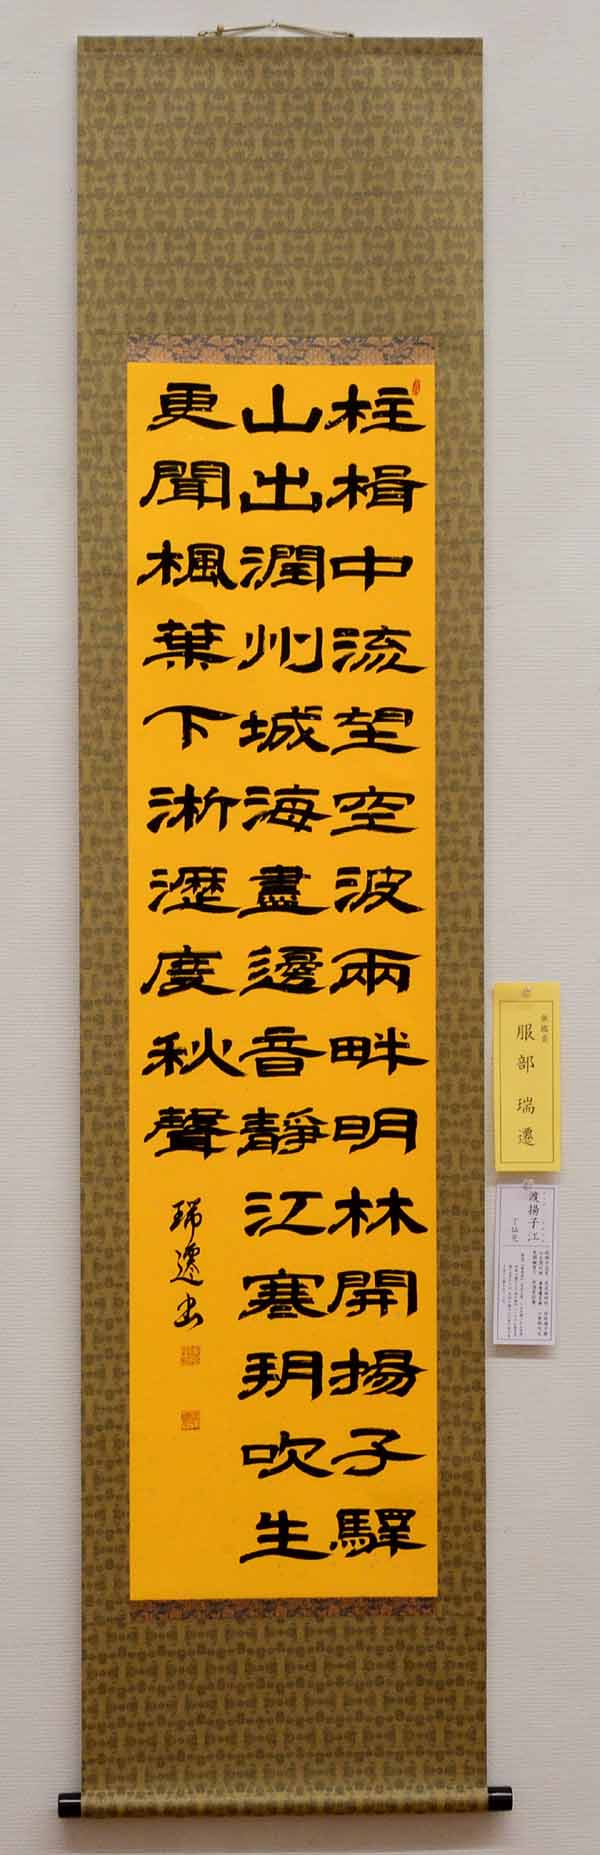 柱楫中流望空波兩畔明林開揚子驛
山出潤州城海盡邊音靜江寒玥吹生
更聞楓葉下淅瀝度秋聲
瑞遷书
服部 瑞遷
渡揚子江
丁仙芝